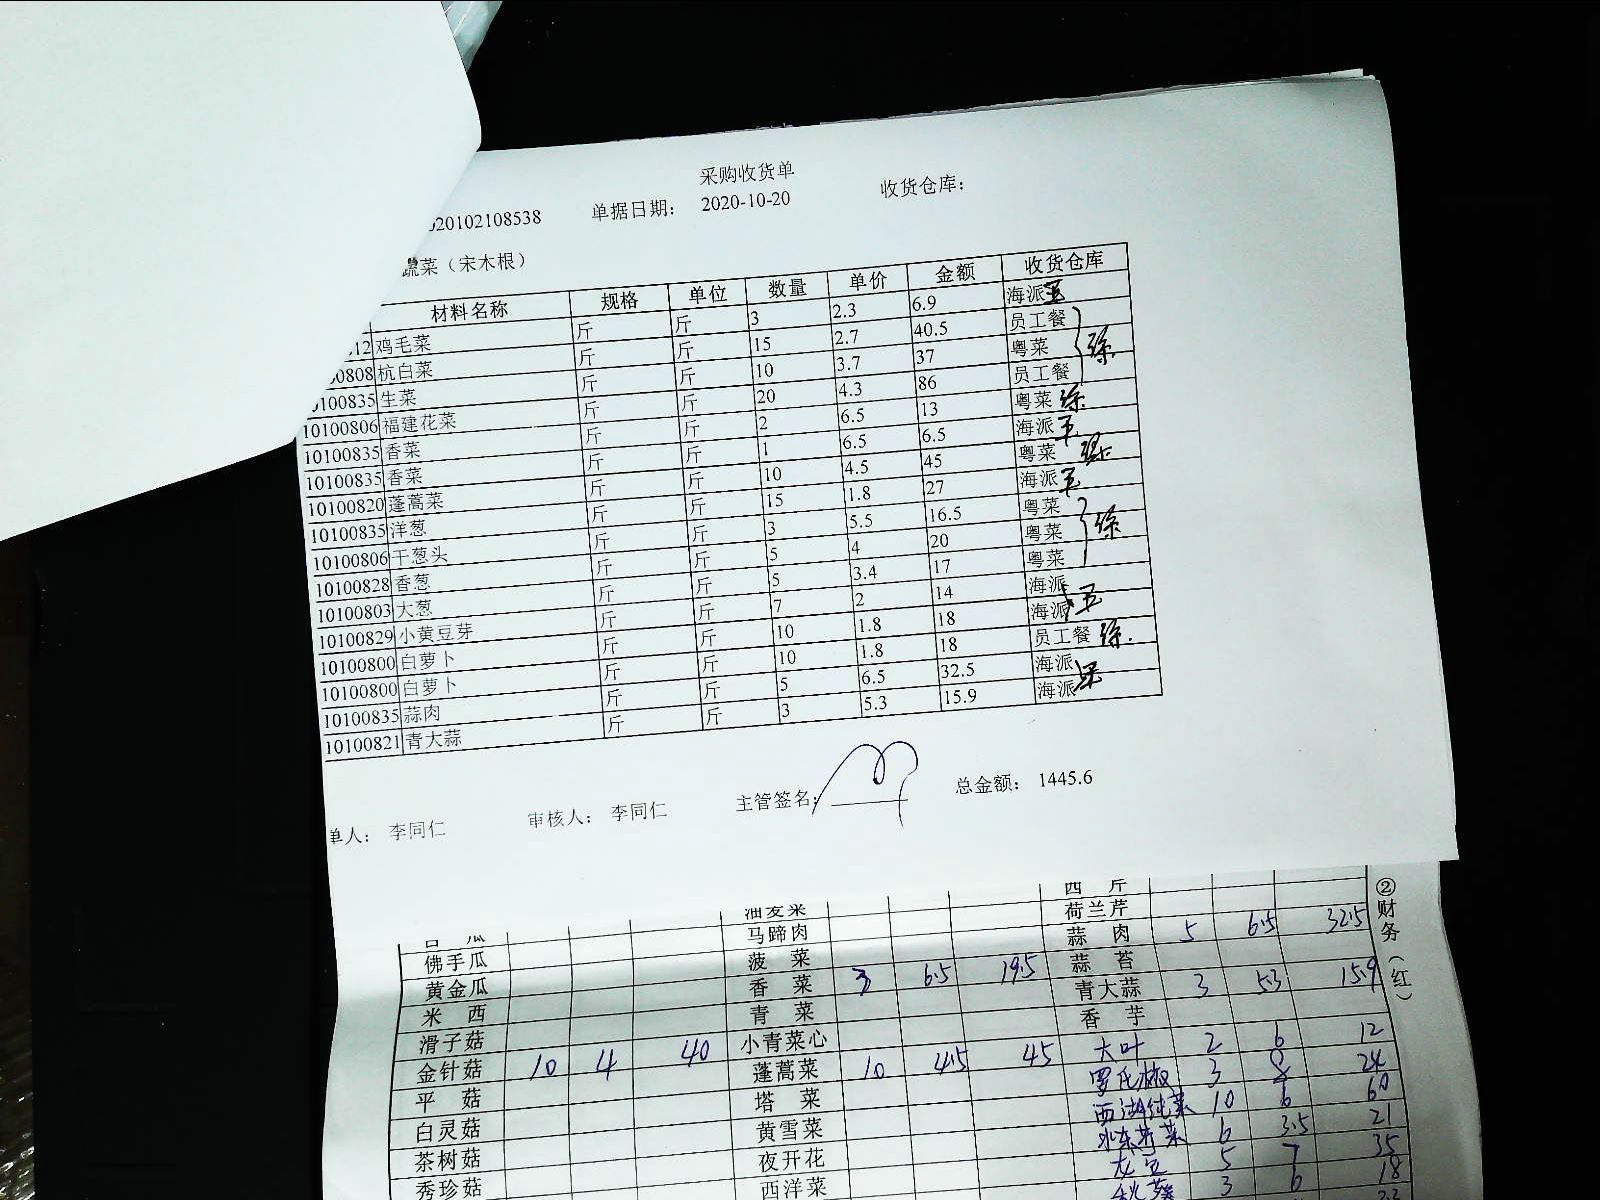 采购收货单
020102108538 单据日期: 2020-10-20 收货仓库:
蔬菜（宋木根）
材料名称 规格 单位 数量 单价 金额 收货仓库
12 鸡毛菜 斤 斤 3 2.3 6.9 海派 王
0808 杭白菜 斤 斤 15 2.7 40.5 员工餐
0100835 生菜 斤 斤 10 3.7 37 粤菜 徐
10100806 福建花菜 斤 斤 20 4.3 86 员工餐
10100835 香菜 斤 斤 2 6.5 13 粤菜 徐
10100835 香菜 斤 斤 1 6.5 6.5 海派 王
10100820 蓬蒿菜 斤 斤 10 4.5 45 粤菜 徐
10100835 洋葱 斤 斤 15 1.8 27 海派 王
10100806 干葱头 斤 斤 3 5.5 16.5 粤菜
10100828 香葱 斤 斤 5 4 20 粤菜 徐
10100803 大葱 斤 斤 5 3.4 17 粤菜
10100829 小黄豆芽 斤 斤 7 2 14 海派
10100800 白萝卜 斤 斤 10 1.8 18 海派 王
10100800 白萝卜 斤 斤 10 1.8 18 员工餐 徐
10100835 蒜肉 斤 斤 5 6.5 32.5 海派
10100821 青大蒜 斤 斤 3 5.3 15.9 海派
单人: 李同仁 审核人: 李同仁 主管签名: 总金额: 1445.6
西 芹
油麦菜 荷兰芹
白 瓜 马蹄肉 蒜 肉 5 6.5 32.5
佛手瓜 菠 菜 蒜 苔
黄金瓜 香 菜 3 6.5 19.5 青大蒜 3 5.3 15.9
米 西 青 菜 香 芋
滑子菇 小青菜心 大叶 2 6 12
金针菇 10 4 40 蓬蒿菜 10 4.5 45 罗氏椒 3 8 24
平 菇 塔 菜 西湖莼菜 10 6 60
白灵菇 黄雪菜 水东芥菜 6 3.5 21
茶树菇 夜开花 龙豆 5 7 35
秀珍菇 西洋菜 秋葵 3 6 18
②财务（红）